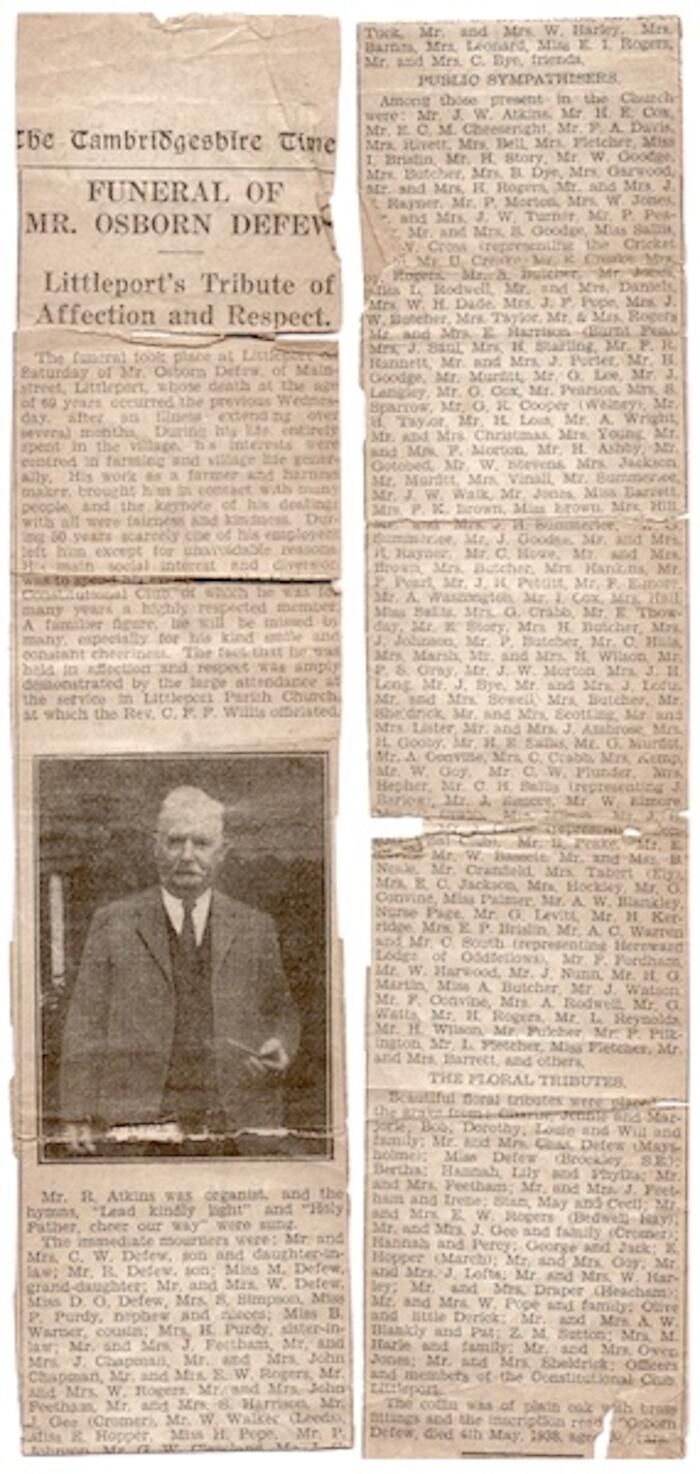 The Cambridgeshire Time
FUNERAL OF
MR. OSBORN DEFEW
Littleport's Tribute of
Affection and Respect.
The funeral took place at Littleport on
Saturday of Mr. Osborn Defew, of Main-
street, Littleport, whose death at the age
of 69 years occurred the previous Wednes-
day, after an illness extending over
several months. During his life, entirely
spent in the village, his interests were
centred in farming and village life gener-
ally. His work as a farmer and harness
maker, brought him in contact with many
people, and the keynote of his dealings
with all were fairness and kindness. Dur-
ing 50 years scarcely one of his employees
left him except for unavoidable reasons.
His main social interest and diversion
was to spend his
Constitutional Club, of which he was for
many years a highly respected member.
A familiar figure, he will be missed by
many, especially for his kind smile and
constant cheeriness. The fact that he was
held in affection and respect was amply
demonstrated by the large attendance at
the service in Littleport Parish Church,
at which the Rev. C. F. F. Willis officiated.
Mr. R. Atkins was organist, and the
hymns, "Lead kindly light" and "Holy
Father, cheer our way" were sung.
The immediate mourners were: Mr. and
Mrs. C. W. Defew, son and daughter-in-
law; Mr. R. Defew, son; Miss M. Defew,
grand-daughter; Mr. and Mrs. W. Defew,
Miss D. O. Defew, Mrs. S. Simpson, Miss
P. Purdy, nephew and nieces; Miss B.
Warner, cousin; Mrs. H. Purdy, sister-in-
law; Mr. and Mrs. J. Feetham, Mr. and
Mrs. J. Chapman, Mr. and Mrs. John
Chapman, Mr. and Mrs. E. W. Rogers, Mr.
and Mrs. W. Rogers, Mr. and Mrs. John
Feetham, Mr. and Mrs. S. Harrison, Mr.
J. Gee (Cromer), Mr. W. Walker (Leeds),
Miss E. Hopper, Miss H. Pope, Mr. P.
Johnson, Mr. G. W.
Tuck, Mr. and Mrs. W. Harley, Mrs.
Barnes, Mrs. Leonard, Miss E. I. Rogers,
Mr. and Mrs. C. Bye, friends.
PUBLIC SYMPATHISERS.
Among those present in the Church
were: Mr. J. W. Atkins, Mr. H. E. Cox,
Mr. E. C. M. Cheesright, Mr. F. A. Davis,
Mrs. Rivett, Mrs. Bell, Mrs. Fletcher, Miss
I. Brislin, Mr. H. Story, Mr. W. Goodge,
Mrs. Butcher, Mrs. B. Dye, Mrs. Garwood,
Mr. and Mrs. H. Rogers, Mr. and Mrs. J.
Rayner, Mr. P. Morton, Mrs. W. Jones,
and Mrs. J. W. Turner, Mr. P. Pea-
Mr. and Mrs. S. Goodge, Miss Sallis,
W. Cross (representing the Cricket
Mr. U. Creake, Mr. E. Creake, Mrs.
Rogers, Mr. A. Butcher, Mr. Jones,
Miss L. Rodwell, Mr. and Mrs. Daniels,
Mrs. W. H. Dade, Mrs. J. F. Pope, Mrs. J.
W. Butcher, Mrs. Taylor, Mr. & Mrs. Rogers
Mr. and Mrs. E. Harrison (Burnt Fen),
Mrs. J. Saul, Mrs. H. Starling, Mr. F. R.
Hannett, Mr. and Mrs. J. Porter, Mr. H.
Goodge, Mr. Murfitt, Mr. G. Lee, Mr. J.
Langley, Mr. G. Cox, Mr. Pearson, Mrs. S.
Sparrow, Mr. G. R. Cooper (Welney), Mr.
H. Taylor, Mr. H. Loss, Mr. A. Wright,
Mr. and Mrs. Christmas, Mrs. Young, Mr.
and Mrs. F. Morton, Mr. H. Ashby, Mr.
Gotobed, Mr. W. Stevens, Mrs. Jackson,
Mr. Murfitt, Mrs. Vinall, Mr. Summerlee,
Mr. J. W. Walk, Mr. Jones, Miss Barrett,
Mrs. P. K. Brown, Miss Brown, Mrs. Hill,
Mrs. J. H. Summerlee,
Summerlee, Mr. J. Goodge, Mr. and Mrs.
H. Rayner, Mr. C. Howe, Mr. and Mrs.
Brown, Mrs. Butcher, Mrs. Hankins, Mr.
F. Pearl, Mr. J. H. Pettitt, Mr. F. Elmore,
Mr. A. Washington, Mr. I. Cox, Mrs. Hall,
Miss Sallis, Mrs. G. Crabb, Mr. E. Thow-
day, Mr. E. Story, Mrs. H. Butcher, Mrs.
J. Johnson, Mr. P. Butcher, Mr. C.
Mrs. Marsh, Mr. and Mrs. H. Wilson, Mr.
P. S. Gray, Mr. J. W. Morton, Mrs. J. H.
Long, Mr. J. Bye, Mr. and Mrs. J. Lofts,
Mr. and Mrs. Sewell, Mrs. Butcher, Mr.
Sheldrick, Mr. and Mrs. Scotting, Mr. and
Mrs. Lister, Mr. and Mrs. J. Ambrose, Mrs.
H. Gooby, Mr. H. E. Sallis, Mr. G. Murfitt,
Mr. A. Convine, Mrs. C. Crabb, Mrs. Kemp,
Mr. W. Goy, Mr. C. W. Plunder, Mrs.
Hepher, Mr. C. H. Sallis (representing J.
Barlow), Mr. J. Elmore, Mr. W. Elmore
Mr. B. Peake, Mr. E.
Mr. W. Bassett, Mr. and Mrs. B.
Neale, Mr. Cranfield, Mrs. Tabert (Ely),
Mrs. E. C. Jackson, Mrs. Hockley, Mr. G.
Convine, Miss Palmer, Mr. A. W. Blankley,
Nurse Page, Mr. G. Levitt, Mr. H. Ker-
ridge, Mrs. E. P. Brislin, Mr. A. C. Warren
and Mr. C. South (representing Hereward
Lodge of Oddfellows), Mr. F. Fordham,
Mr. W. Harwood, Mr. J. Nunn, Mr. H. G.
Martin, Miss A. Butcher, Mr. J. Watson
Mr. F. Convine, Mrs. A. Rodwell, Mr. G.
Watts, Mr. H. Rogers, Mr. L. Reynolds,
Mr. H. Wilson, Mr. Fulcher, Mr. P. Pilk-
ington, Mr. L. Fletcher, Miss Fletcher, Mr.
and Mrs. Barrett, and others.
THE FLORAL TRIBUTES.
Beautiful floral tributes were placed
the grave from: Charlie, Jennie and Mar-
jorie; Bob, Dorothy; Louie and Will and
family; Mr. and Mrs. Chas. Defew (Mays-
holme); Miss Defew (Brockley, S.E.);
Bertha; Hannah, Lily and Phyllis; Mr.
and Mrs. Feetham; Mr. and Mrs. J. Feet-
ham and Irene; Stan, May and Cecil; Mr.
and Mrs. E. W. Rogers (Bedwell Hay);
Mr. and Mrs. J. Gee and family (Cromer);
Hannah and Percy; George and Jack; E.
Hopper (March); Mr. and Mrs. Goy; Mr.
and Mrs. J. Lofts; Mr. and Mrs. W. Har-
ley; Mr. and Mrs. Draper (Heacham);
Mr. and Mrs. W. Pope and family; Olive
and little Derick; Mr. and Mrs. A. W.
Blankly and Pat; Z. M. Sutton; Mrs. M.
Harle and family; Mr. and Mrs. Owen
Jones; Mr. and Mrs. Sheldrick; Officers
and members of the Constitutional Club,
Littleport.
The coffin was of plain oak with brass
fittings and the inscription read: "Osborn
Defew, died 4th May, 1938, aged years."